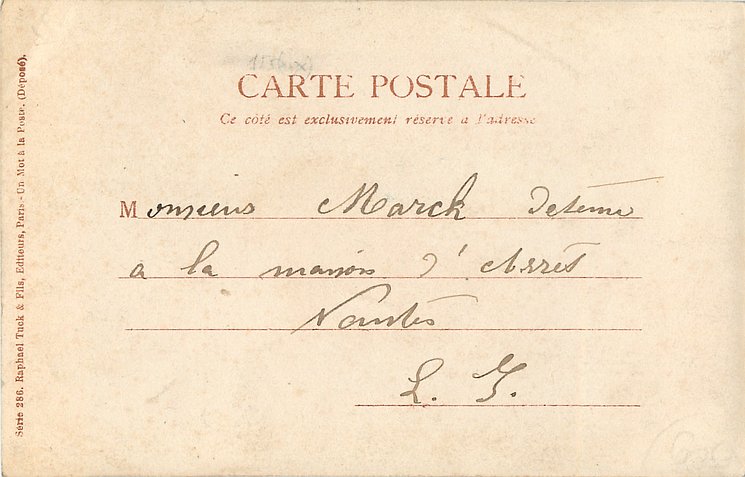 CARTE POSTALE
Ce côté est exclusivement réservé a l'adresse
Monsieur Marck Detenu
a la maison d'Arrêt
Nantes
L. I.
Série 286. Raphael Tuck & Fils, Editeurs, Paris - Un Mot à la Poste. (Déposé).